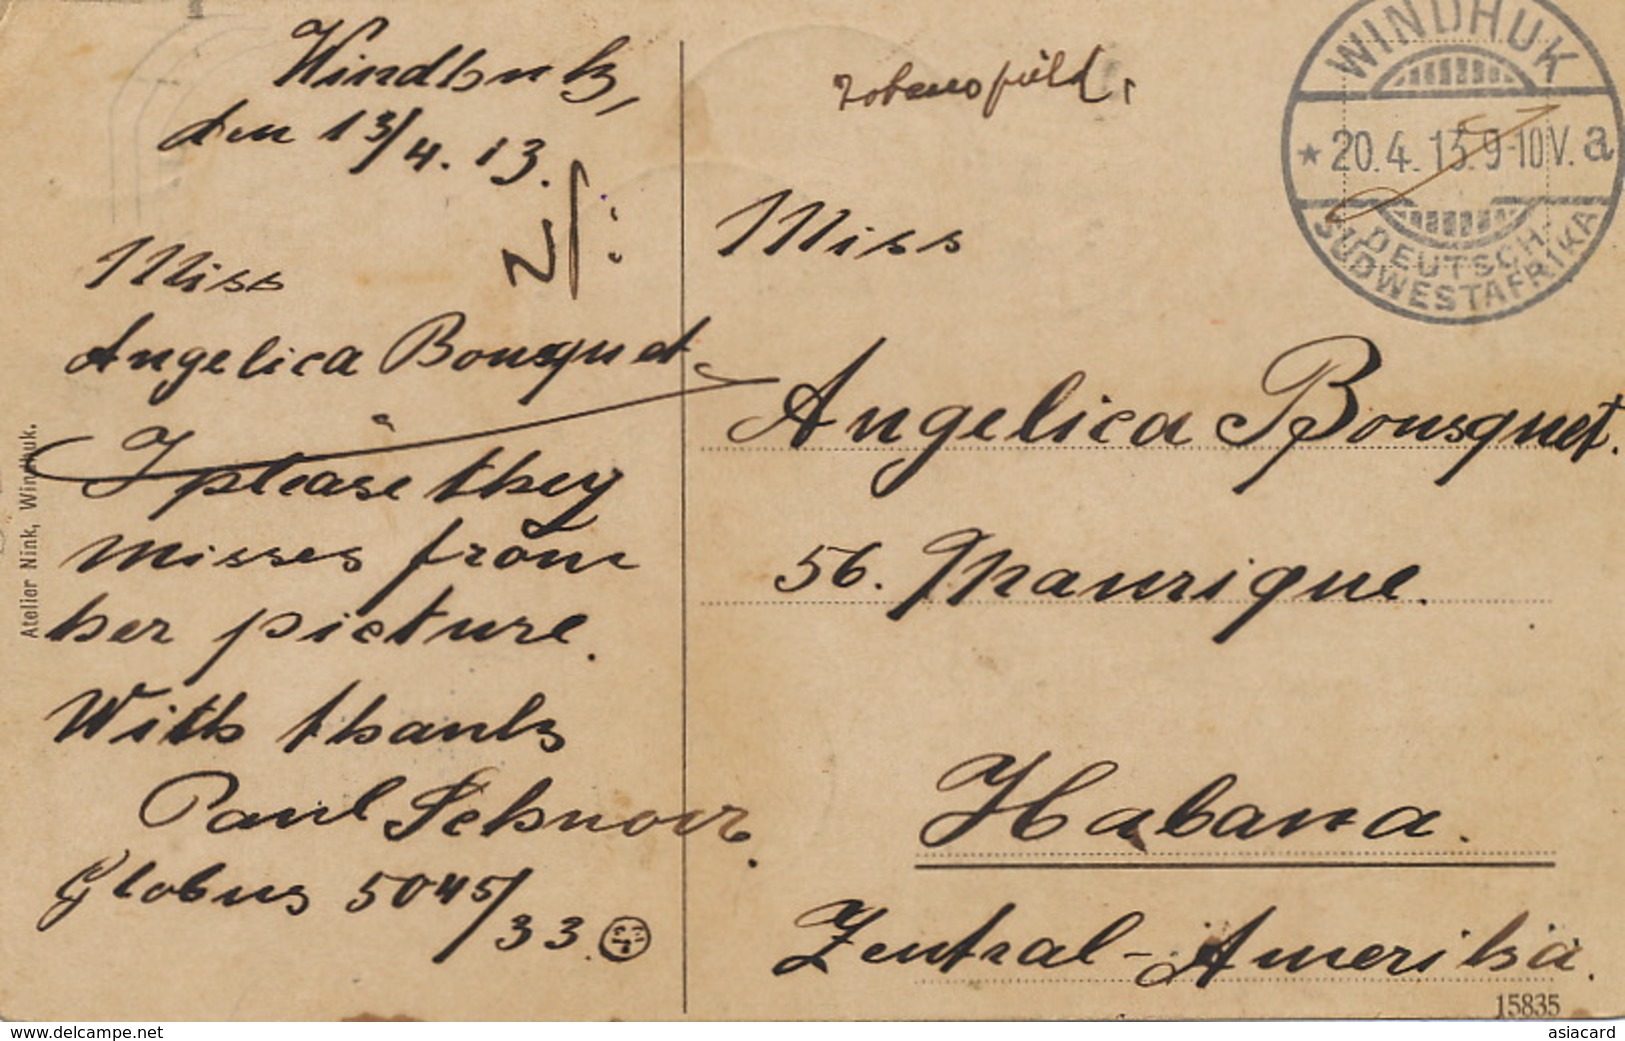 Windhuk,
den 13/4. 13.
Miss
Angelica Bousquet.
I please they
misses from
her picture.
With thanks
Paul Schnorr.
Globus 5045/33.
Atelier Nink, Windhuk.
WINDHUK
* 20.4. 13. 9-10V. a
DEUTSCH-
SÜDWESTAFRIKA
Miss
Angelica Bousquet.
56. Manrique.
Habana.
Zentral-Amerika.
15835
www.delcampe.net
asiacard